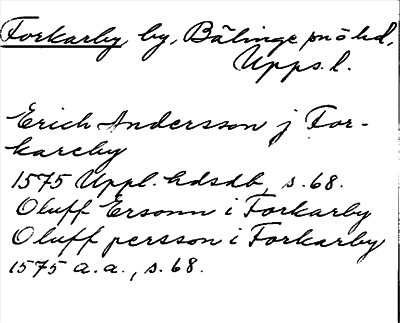 Forkarby by, Bälinge sn o hd,
Upps. l.
Erich Andersson j For-
kareby
1575 Uppl. hdsdb, s. 68.
Oluff Ersonn i Forkarby
Oluff persson i Forkarby
1575 a.a., s. 68.